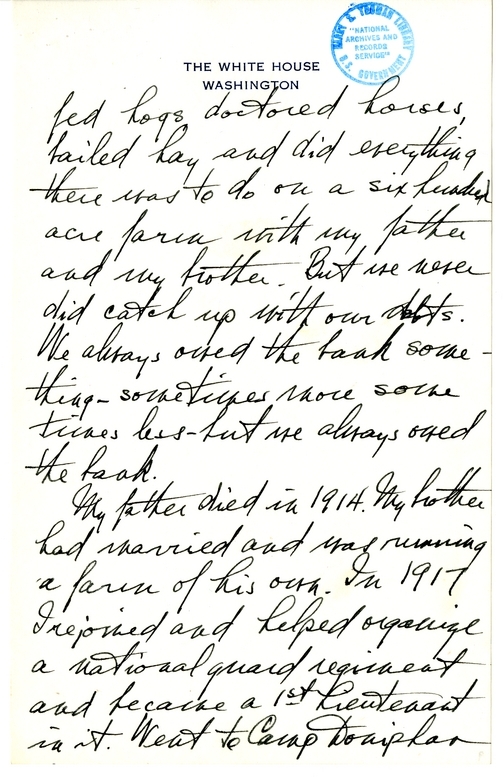 HARRY S. TRUMAN LIBRARY
"NATIONAL
ARCHIVES AND
RECORDS
SERVICE"
U.S. GOVERNMENT
THE WHITE HOUSE
WASHINGTON
fed hogs, doctored horses,
bailed hay and did everything
there was to do on a six hundred
acre farm with my father
and my brother. But we never
did catch up with our debts.
We always owed the bank some-
thing - sometimes more some
times less - but we always owed
the bank.
My father died in 1914. My brother
had married and was running
a farm of his own. In 1917
I rejoined and helped organize
a national guard regiment
and became a 1st Lieutenant
in it. Went to Camp Doniphan